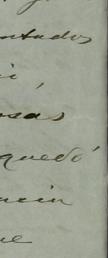 ntados
i,
osas
quedó
ncia
ue